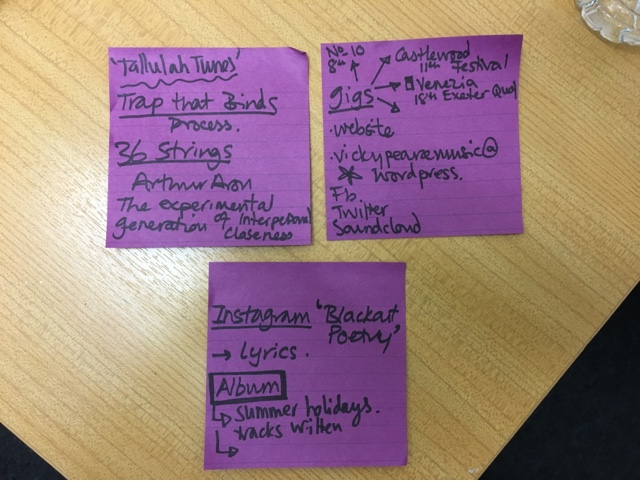 'Tallulah Tunes'
Trap that Binds
Process.
36 Strings
Arthur Aron
The experimental
generation of interpersonal
closeness
No 10
8th
Castlewood
11th Festival
gigs
Venezia
18th Exeter Quay
·website
·vickypearsemusic@
wordpress.
Fb
Twitter
Soundcloud
Instagram 'Blackout
Poetry'
→ Lyrics.
Album
↳ Summer holidays.
tracks written
↳